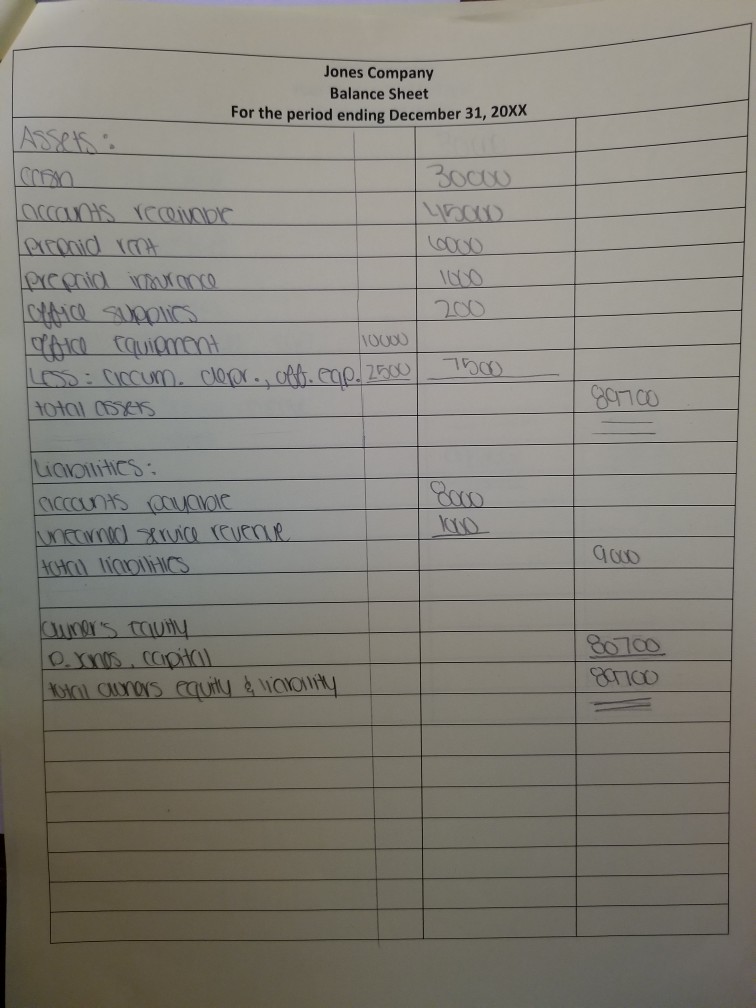 Jones Company
Balance Sheet
For the period ending December 31, 20XX
Assets:
cash 30000
accounts receivable 45000
prepaid rent 6000
prepaid insurance 1000
office supplies 200
office equipment 10000
Less: accum. depr., off. eqp. 2500 7500
total assets 89700
Liabilities:
accounts payable 8000
unearned service revenue 1000
total liabilities 9000
owner's equity
D. Jones, capital 80700
total owners equity & liability 89700